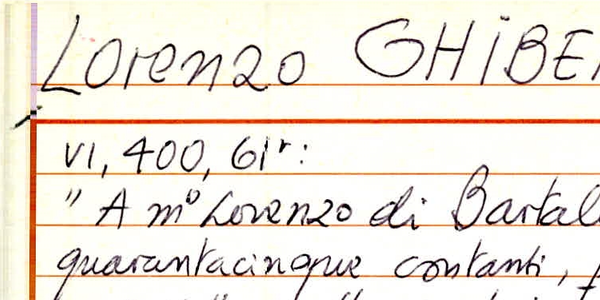 Lorenzo GHIBE
VI, 400, 61r:
" A mº Lorenzo di Bartal
quarantacinque contanti,